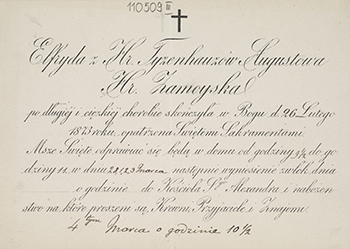 110509 III
Elfryda z Hr. Tyzenhauzów Augustowa
Hr. Zamoyska
po długiéj i ciężkiéj chorobie skończyła w Bogu d. 26 Lutego
1873 roku, opatrzona Świętemi Sakramentami.
Msze Święte odprawiać się będą w domu od godziny 9½ do go-
dziny 11. w dniu 28 i 2 3 Marca następnie wyniesienie zwłok dnia
o godzinie do Kościoła Sgo Alexandra i nabożeń-
stwo na które proszeni są, Krewni, Przyjaciele i Znajomi.
4 tym Marca o godzinie 10½